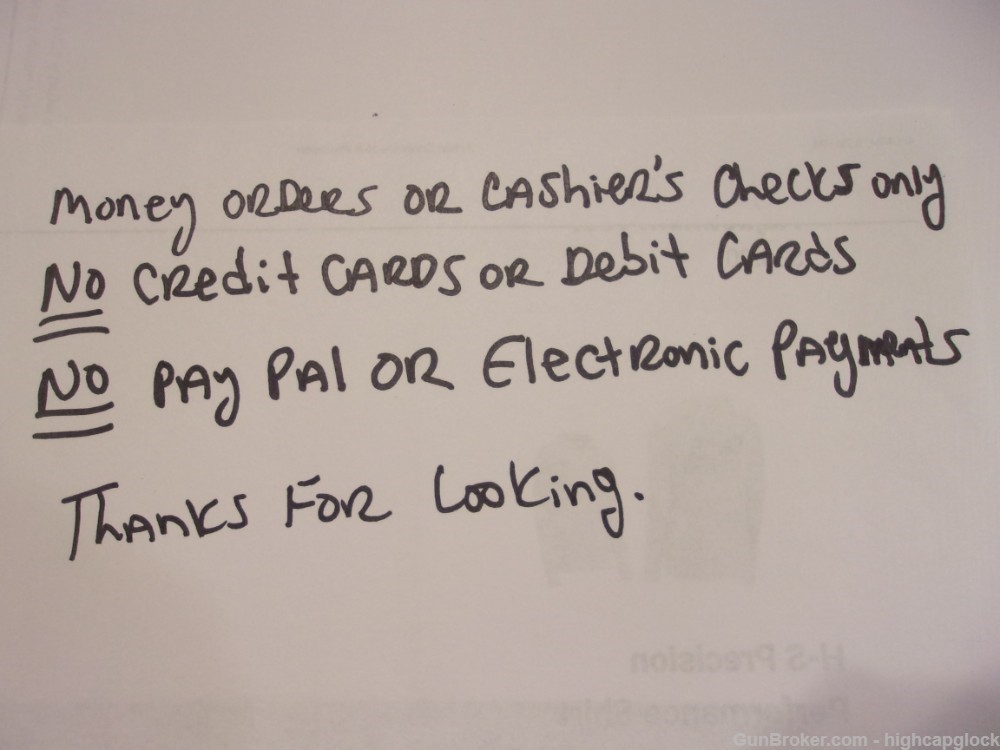 Money ORDeRS OR CAShieR's Checks only
NO CRedit CARDS OR Debit CARds
NO PAy PAl OR ElectRonic PAyments
ThAnkS FOR Looking.
H-S Precision
Performance Shirt
GunBroker.com - highcapglock